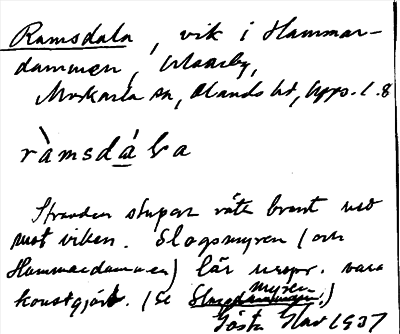 Ramsdala, vik i Hammar-
dammen,
Morkarla sn, Olands hd, Upps. l. 8
Stranden stupar rätt brant ned
mot viken. Slagsmyren (och
Hammardammen) lär urspr. vara
konstgjord. (Se myren.)
Gösta 1937